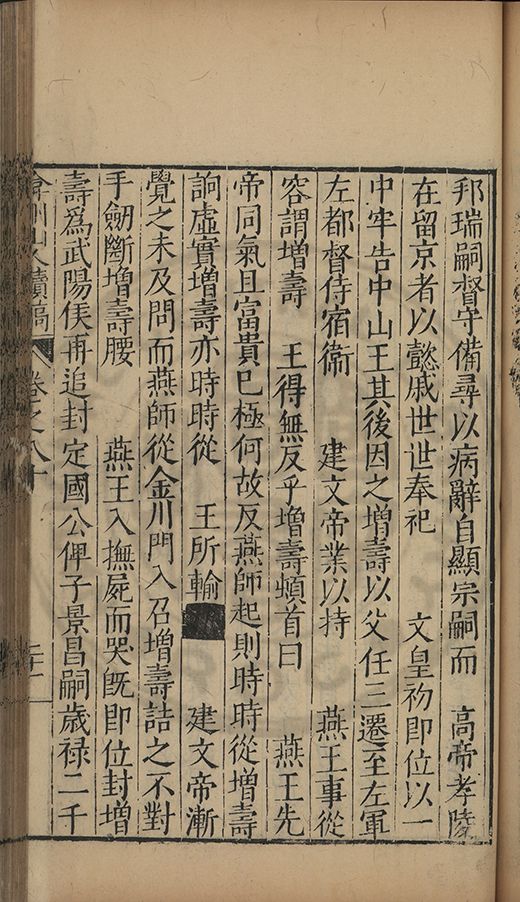 邦瑞嗣督守備尋以病辭自顯宗嗣而　高帝孝陵
在留京者以懿戚世世奉祀　文皇初即位以一
中牢告中山王其後因之増壽以父任三遷至左軍
左都督侍宿衞　建文帝業以持　燕王事從
容謂増壽　王得無反乎増壽頓首曰　燕王先
帝同氣且富貴巳極何故反燕師起則時時從増壽
詗虛實増壽亦時時從　王所輸　建文帝漸
覺之未及問而燕師從金川門入召増壽詰之不對
手劒斷増壽腰　燕王入撫屍而哭旣即位封増
壽爲武陽侯再追封定國公俾子景昌嗣歳禄二千
弇州山人續稿　卷之八十